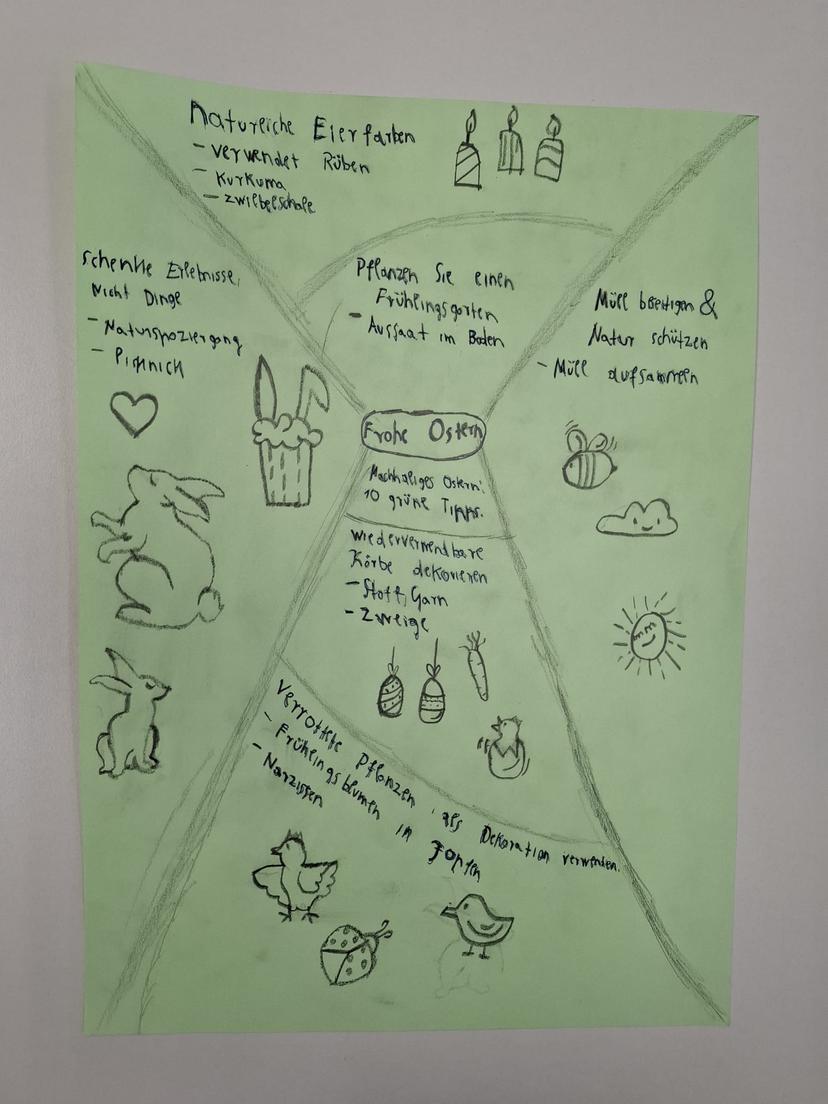 Natureiche Eierfarben
- verwendet Rüben
- Kurkuma
- zwiebelschale
schenke Erlebnisse,
Nicht Dinge
- Naturspaziergang
- Picknick
Pflanzen Sie einen
Frühlingsgarten
- Aussaat im Boden
Müll beseitigen &
Natur schützen
- Müll aufsammeln
Frohe Ostern
Nachhaliges Ostern:
10 grüne Tipps.
wiederverwendbare
Körbe dekorieren
- Stoff, Garn
- Zweige
Pflanzen, als Dekoration verwenden.
- Frühlingsblumen in
- Narzissen